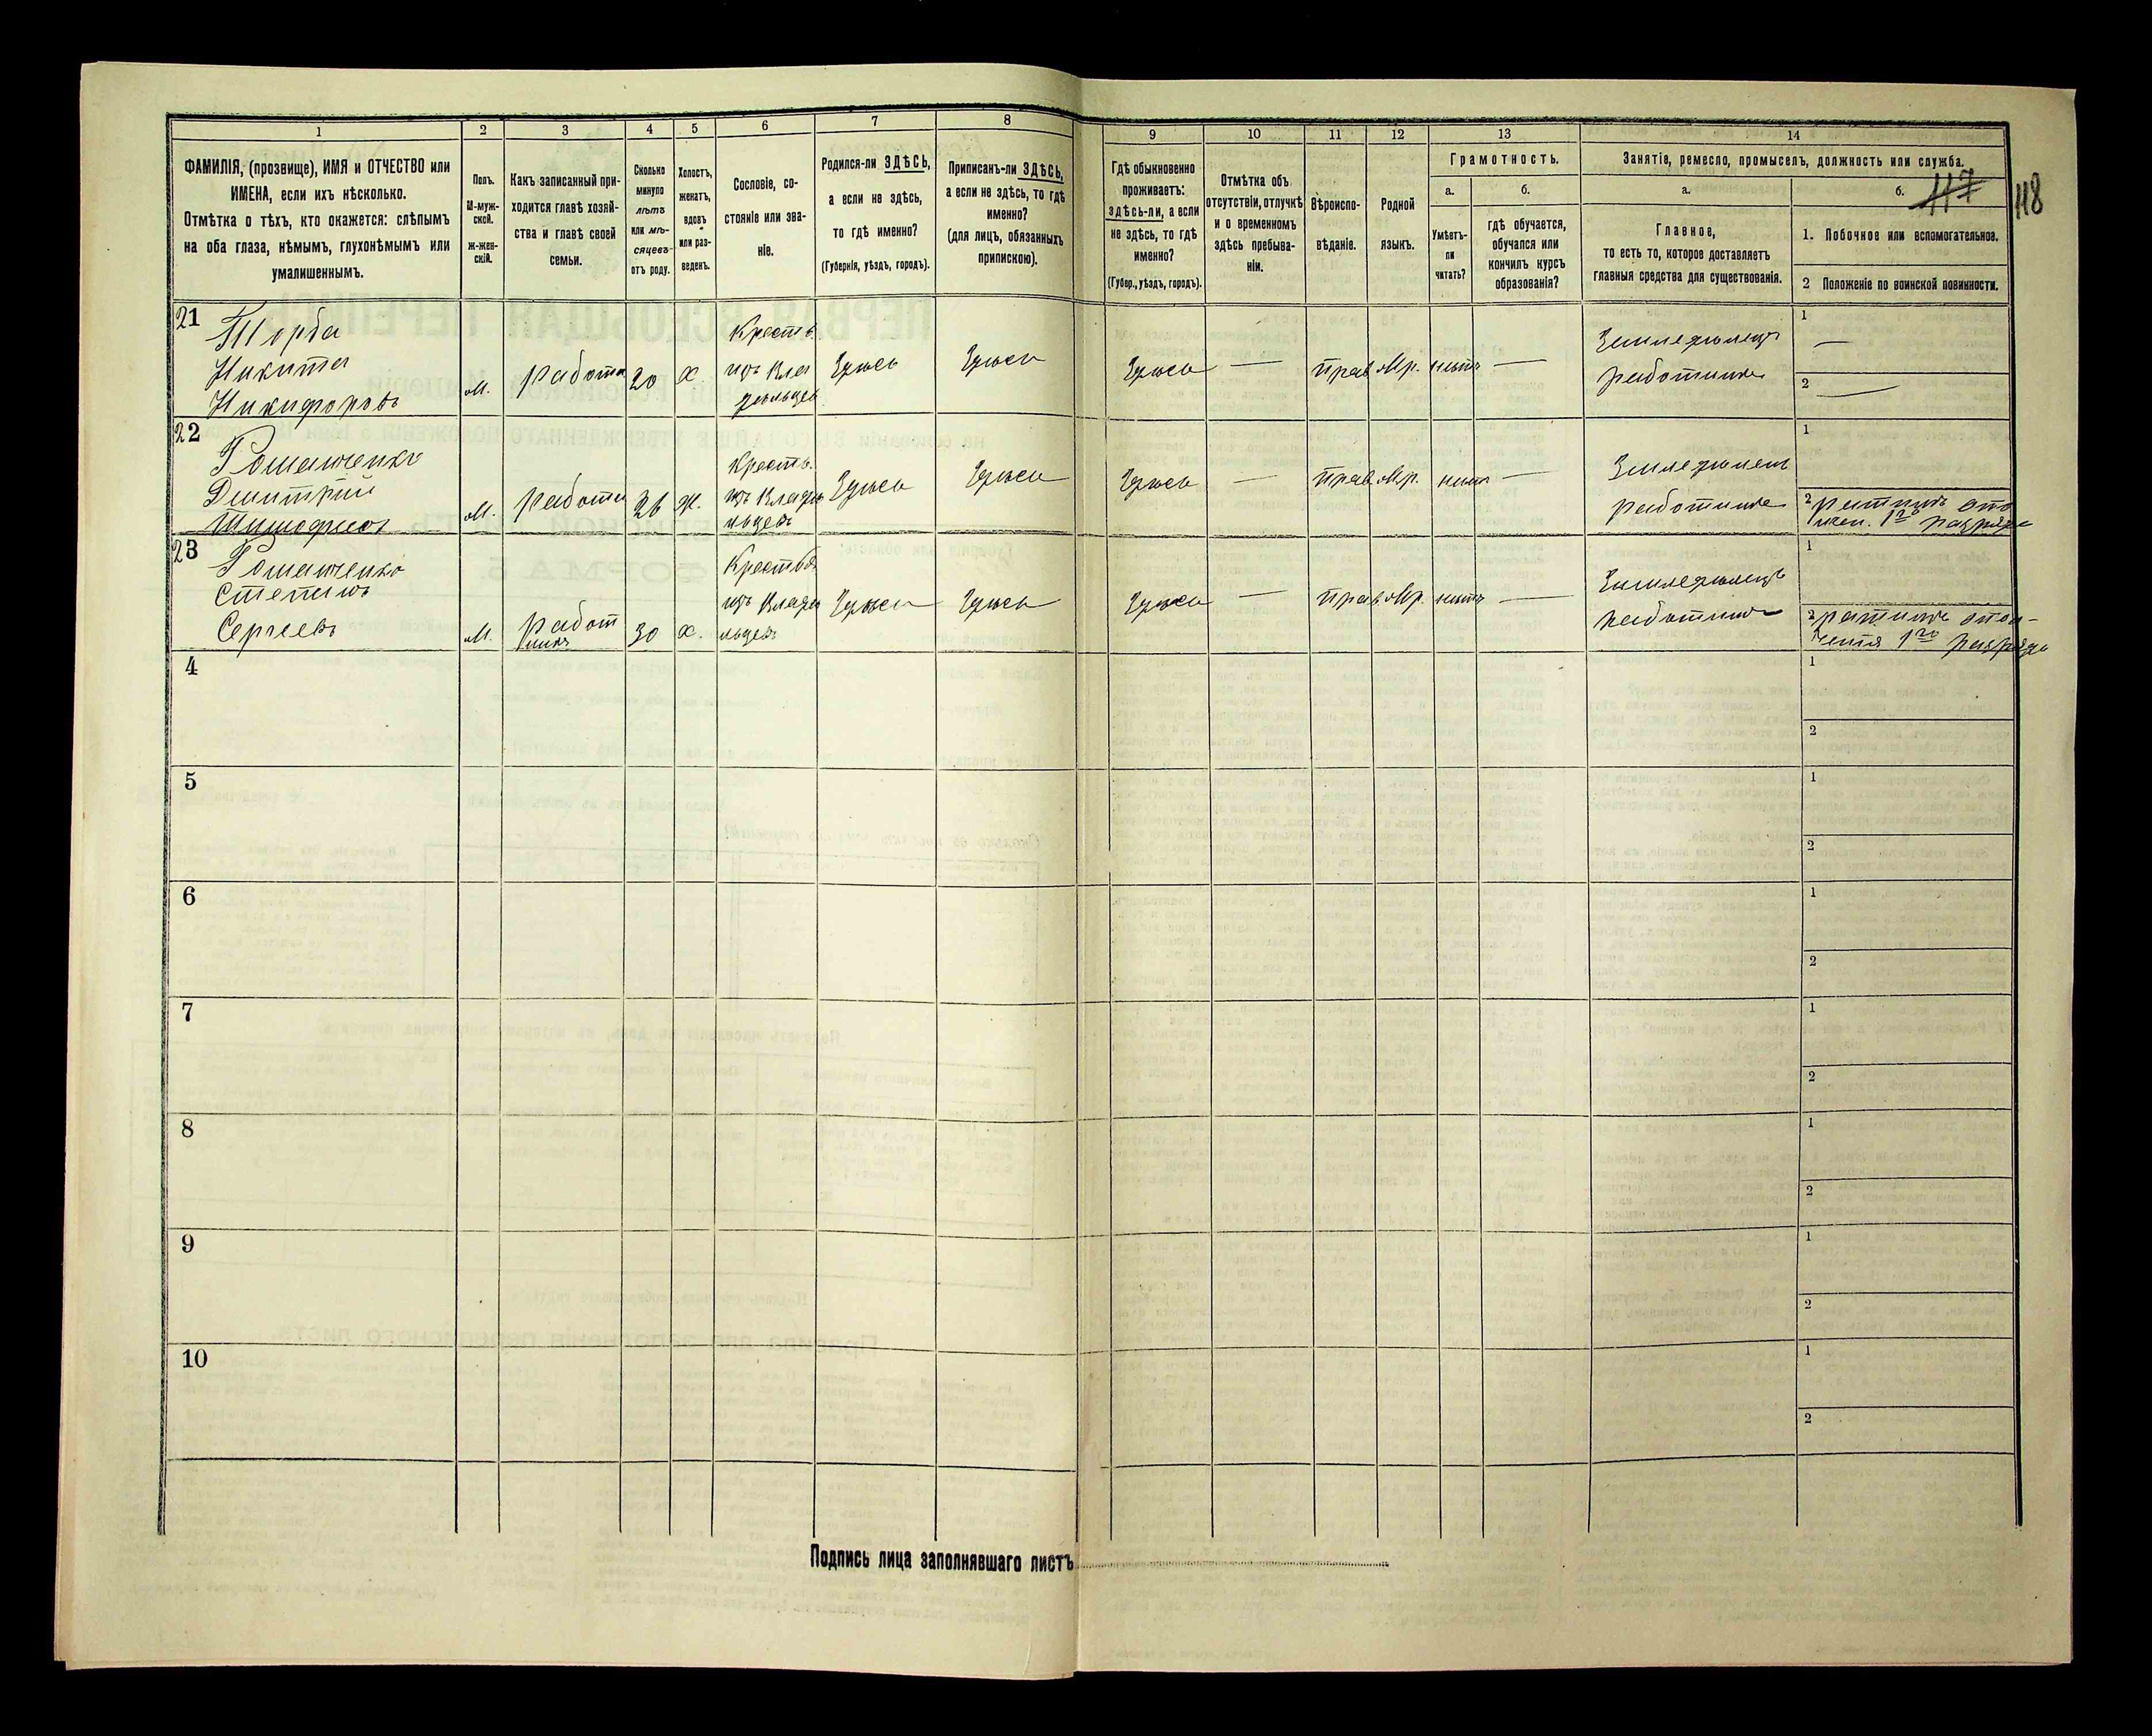 1 2 3 4 5 6 7 8 9 10 11 12 13 14
ФАМИЛІЯ, (прозвище), ИМЯ и ОТЧЕСТВО или
ИМЕНА, если ихъ нѣсколько.
Отмѣтка о тѣхъ, кто окажется: слѣпымъ
на оба глаза, нѣмымъ, глухонѣмымъ или
умалишеннымъ.
Полъ.
М-муж-
ской.
ж-жен-
скій.
Какъ записанный при-
ходится главѣ хозяй-
ства и главѣ своей
семьи.
Сколько
минуло
лѣтъ
или мѣ-
сяцевъ
отъ роду.
Холостъ,
женатъ,
вдовъ
или раз-
веденъ.
Сословіе, со-
стояніе или зва-
ніе.
Родился-ли ЗДѢСЬ,
а если не здѣсь,
то гдѣ именно?
(Губернія, уѣздъ, городъ).
Приписанъ-ли ЗДѢСЬ,
а если не здѣсь, то гдѣ
именно?
(для лицъ, обязанныхъ
припискою).
Гдѣ обыкновенно
проживаетъ:
здѣсь-ли, а если
не здѣсь, то гдѣ
именно?
(Губер., уѣздъ, городъ).
Отмѣтка объ
отсутствіи, отлучкѣ
и о временномъ
здѣсь пребыва-
ніи.
Вѣроиспо-
вѣданіе.
Родной
языкъ.
Грамотность.
а.
Умѣетъ-
ли
читать?
б.
гдѣ обучается,
обучался или
кончилъ курсъ
образованія?
Занятіе, ремесло, промыселъ, должность или служба.
а.
Главное,
то есть то, которое доставляетъ
главныя средства для существованія.
б.
117
118
1. Побочное или вспомогательное.
2 Положеніе по воинской повинности.
21
Торба
Никита
Никифоровъ
м.
Работн
20
х
Крестъ.
изъ Вла
дѣльцев
Здѣсь
Здѣсь
Здѣсь
—
Прав.
Мр.
нѣтъ
—
Земледѣлецъ
работникъ
1
—
2
—
22
Романченко
Дмитрий
Тимофѣевъ
м.
Работн
26
ж.
Крестъ.
изъ Владѣ
льцевъ
Здѣсь
Здѣсь
Здѣсь
—
Прав.
Мр.
нѣтъ
—
Земледѣлецъ
работникъ
1
2 ратникъ опо
лчен. 1го разряда
23
Романченко
Степанъ
Сергѣевъ
м.
Работ
никъ
30
х.
Крестья
изъ Владѣ
льцевъ
Здѣсь
Здѣсь
Здѣсь
—
Прав.
Мр.
нѣтъ
—
Земледѣлецъ
работникъ
1
2 ратникъ опол-
ченія 1го разряда
4
1
2
5
1
2
6
1
2
7
1
2
8
1
2
9
1
2
10
1
2
Подпись лица заполнявшаго листъ